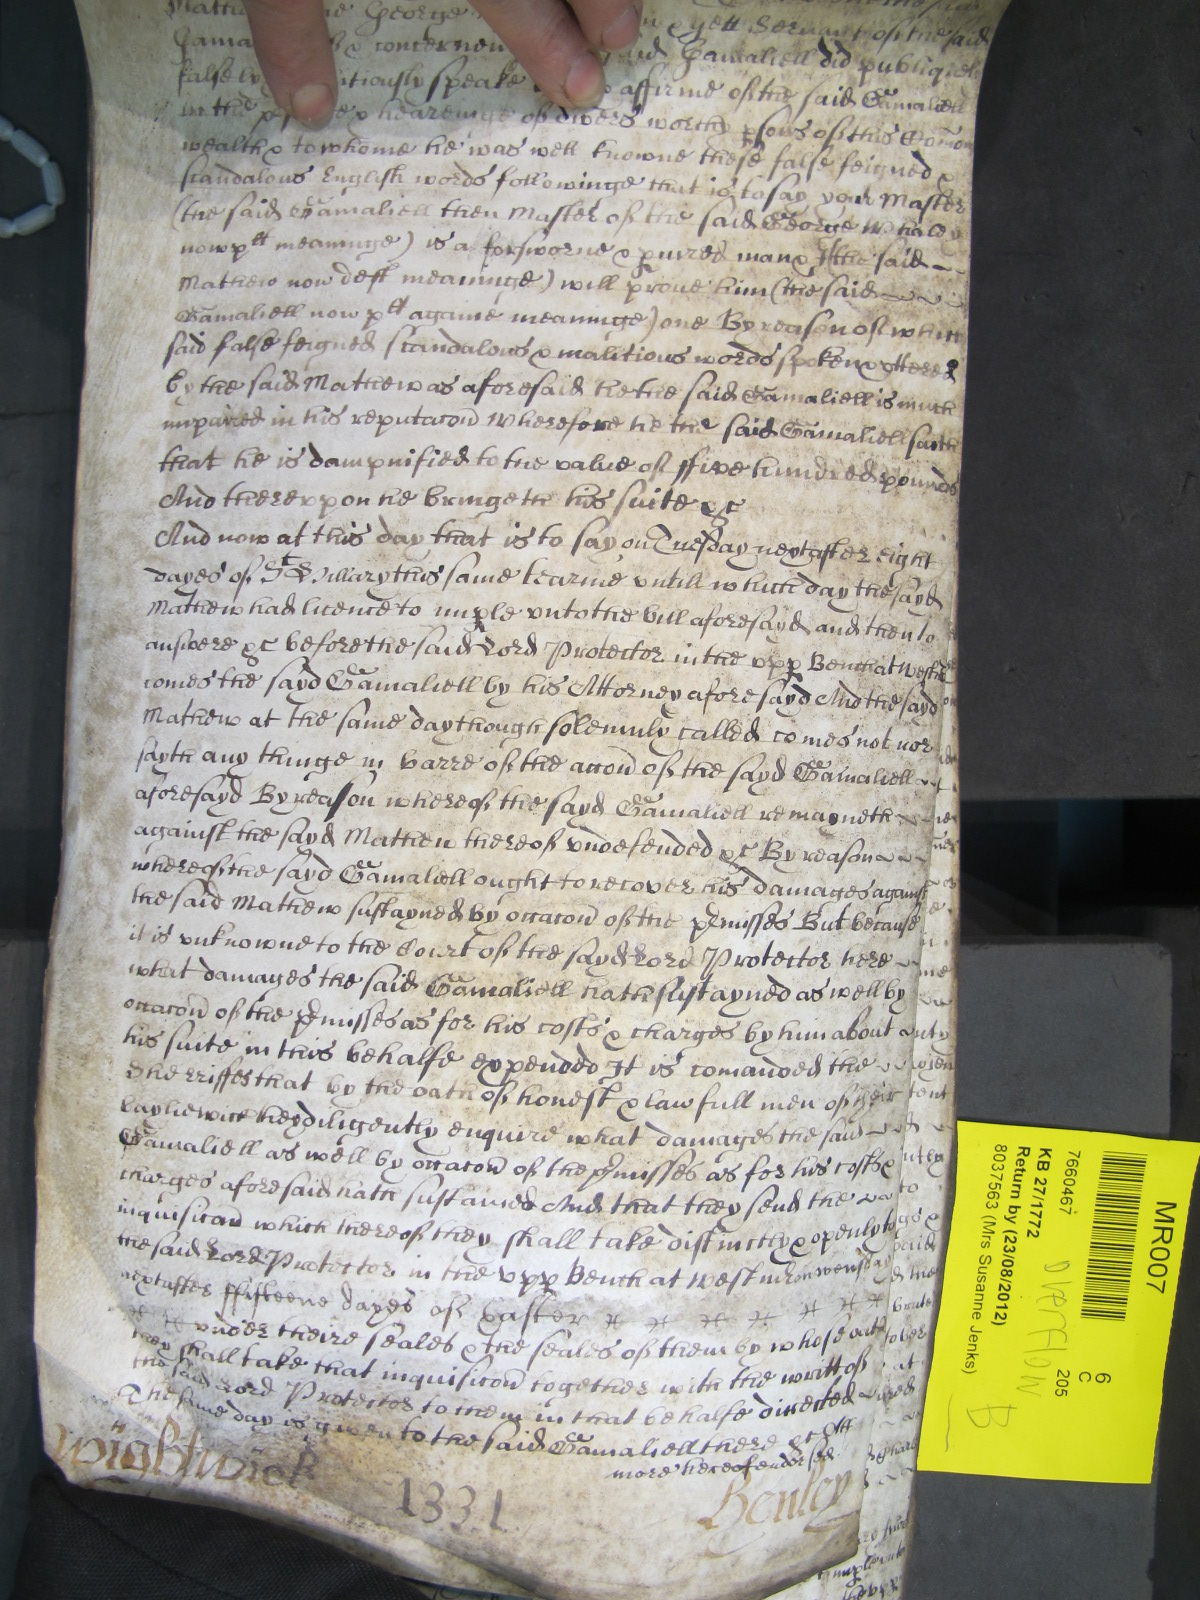 George yett Servant of the said
Gama concernen Gamaliell did publiquely
falsely itiously speake affirme of the said Gamaliell
in the heareinge of divers worthy psons of this Comon
wealth & to whome he was well knowne these false feigned &
scandalous English words followinge that is to say your Master
(the said Gamaliell then Master of the said George Whaley
now plt meaninge) is a forsworne & piured man & I the said
Mathew now deft meaninge) will prove him (the said
Gamaliell now plt againe meaninge) one By reason of which
said false feigned scandalous & malitious words spoken & vttered
by the said Mathew as aforesaid he the said Gamaliell is much
impaired in his reputacon Wherefore he the said Gamaliell saith
that he is dampnified to the value of ffive hundred pounds
And therevpon he bringeth his suite &c
And now at this day that is to say on Tuesday next after eight
dayes of St Hillary this same tearme vntill which day the sayd
Mathew had licence to imple vnto the bill aforesayd and then to
answere &c before the said Lord Protector in the vpp Bench at Westm
comes the sayd Gamaliell by his Attorney aforesayd And the sayd
Mathew at the same day though solemnly called comes not nor
sayth any thinge in barre of the accon of the sayd Gamaliell
aforesayd By reason whereof the sayd Gamaliell remayneth
against the sayd Mathew thereof vndefended &c By reason
whereof the sayd Gamaliell ought to recover his damages against
the said Mathew sustayned by occacon of the pmisses But because
it is vnknowne to the Court of the sayd Lord Protector here
what damages the said Gamaliell hath sustayned as well by
occacon of the pmisses as for his costs & charges by him about
his suite in this behalfe expended It is comanded the
Sherriffes that by the oath of honest & lawfull men of their
bayliewick they diligently enquire what damages the said
Gamaliell as well by occacon of the pmisses as for his costs &
charges aforesaid hath sustained And that they send the
inquisicon which thereof they shall take distinctly & openly to
the said Lord Protector in the vpp Bench at Westm on wensday
next after ffifteene dayes of Easter
vnder theire seales & the seales of them by whose oath
they shall take that inquisicon together with the writt of
the said Lord Protector to them in that behalfe directed
The same day is given to the said Gamaliell there &c
more hereof endorsed
Wightwick
1331
Henley
MR007
7660467
KB 27/1772
Return by (23/08/2012)
8037563 (Mrs Susanne Jenks)
6
C
205
OVERFLOW
B